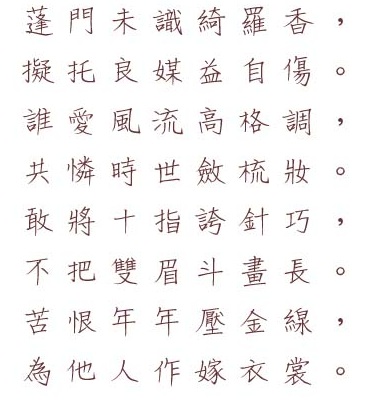 蓬門未識綺羅香，
擬托良媒益自傷。
誰愛風流高格調，
共憐時世斂梳妝。
敢將十指誇針巧，
不把雙眉斗畫長。
苦恨年年壓金線，
為他人作嫁衣裳。